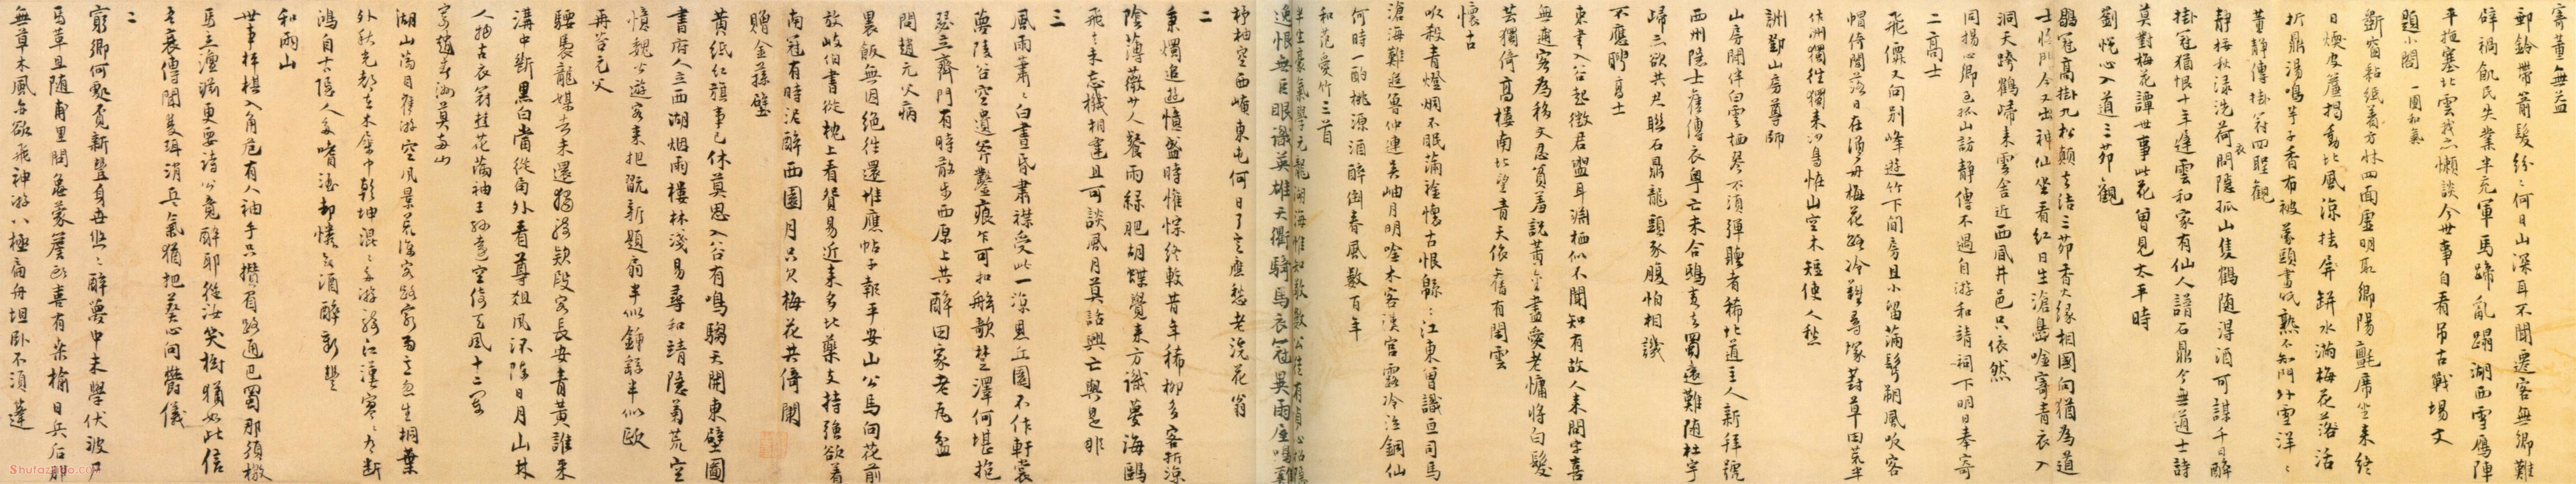 寄董無益
郵鈴帶箭髮紛〻何日山深耳不聞遷客無鄉難
辟禍飢民失業半充軍馬蹄亂蹋湖西雪鴈陣
平拖塞北雲我亦懶談今世事自看吊古戰場文
題小閣 一團和氣
斷窗黏紙著方牀四面虛明取鄉陽氈席坐來終
日煖皮簾揭動北風涼挂屏餅水滿梅花落活
折鼎湯鳴芋子香布被蒙頭書味熟不知門外雪洋〻
董靜傳掛冠四聖觀
靜梅秋淥洗荷衣閒隱孤山隻鶴隨得酒可謀千日醉
掛冠猶恨十年遲雲和家有仙人譜石鼎今無道士詩
莫對梅花譚世事此花曾見太平時
劉悅心入道三茆觀
鶡冠高掛九松顛去結三茆香火緣相國向猶為道
士將門今又出神仙坐看紅日生滄島唫寄青衣入
洞天跨鶴歸來雲舍近西風井邑只依然
同楊心卿過孤山訪靜傳不遇自游和靖祠下明日奉寄
二高士
飛儷又向別峰遊竹下閒房且小留蒲髩翩風吹客
帽倚闌落日在漁舟梅花路冷難尋塚葑草田荒半
佔洲獨往獨來鷗鳥怪山空木短使人愁
訓鄧山房尊師
山房閒伴白雲栖琴不須彈聽者稀北道主人新拜號
西州隱士舊傳衣粵亡未合鴟夷去蜀遠難隨杜宇
歸亦欲共君聯石鼎龍頭豕腹怕相譏
不應聘高士
束書入谷起徵君盥耳淵栖似不聞知有故人来問字喜
無邇客為移文忍貧羞說黃金盡愛老慵將白髮
芸獨倚高樓南北望青天依舊有閒雲
懷古
吹殺青燈烟不眠滿襟懷古恨緜〻江東曾識亘司馬
滄海難逃魯仲連吳岫月明唫木客漢宮露冷泣銅仙
何時一酌桃源酒醉倒春風數百年
和范愛竹三首
半生豪氣學元龍湖海惟知敬數公進有貞心祐隱
逸恨無巨眼識英雄天衢騎馬衣冠異雨屋鳴雞
杼柚空西崦東屯何日了是應愁老浣花翁
二
秉燭追遊憶盛時惟悰終較昔年稀柳多客折涼
陰薄薇少人餐雨綠肥胡蝶覺来方識夢海鷗
飛去未忘機相逢且可談風月莫話興亡與是非
三
風雨蕭〻白晝昏肅襟受此一涼恩丘園不作軒裳
夢陵谷空遺斧鑿痕乍可扣舷歌楚澤何堪抱
瑟立齊門有時散步西原上共醉田家老瓦盆
問趙元父病
裹飯無因絕往還堆應帖子報平安山公馬向花前
放岐伯書從枕上看貧易近来多北藥支持強欲著
南冠有時泥醉西園月只欠梅花共倚闌
贈金蓀壁
黃紙紅旗事已休莫思入谷有鳴騶天開東壁圖
書府人立西湖烟雨樓林淺易尋和靖隱菊荒空
憶魏公遊客来把翫新題扇半似鍾繇半似歐
再答元父
騕褭龍媒去未還獨騎款段客長安青黃誰来
溝中斷黑白當從局外看尊俎風流陳日月山林
人物古衣冠桂花滿袖王孫意空倚天風十二闌
寄趙春洲莫兩山
湖山滿目舊游空風景蒼涼客路窮雨意忽生桐葉
外秋光都在木犀中乾坤混〻多游騎江漢寥〻有斷
鴻自古隱人多嗜酒却憐無酒醉新豐
和雨山
世事枰棋入角危有人袖手只攢眉路通巴蜀那須檄
馬立澶淵更要詩公竟醉耶從汝笑樹猶如此信
吾衰傳聞隻珥消兵氣猶把葵心向鬱儀
二
窮鄉何處覓新豐身世悠〻醉夢中未學伏波尸
馬革且隨甫里閉龜蒙簷欹喜有柴榆日兵后那
無草木風亦欲飛神游八極扁舟坦卧不須蓬
Shufazidian.com